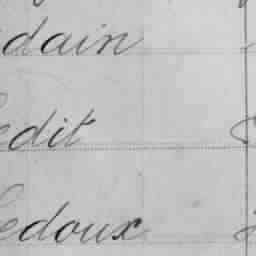 dain
edit
edoux